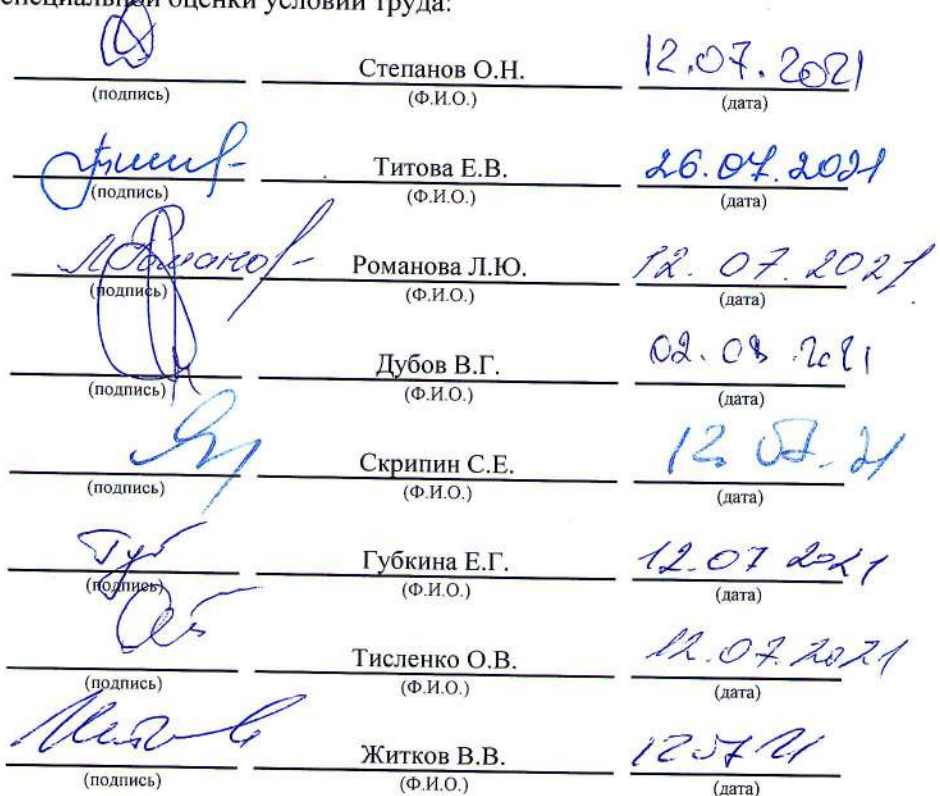 специальной оценки условий труда:
Степанов О.Н. 12.07.2021
(подпись) (Ф.И.О.) (дата)
Титова Е.В. 26.07.2021
(подпись) (Ф.И.О.) (дата)
Романова Л.Ю. 12.07.2021
(подпись) (Ф.И.О.) (дата)
Дубов В.Г. 02.08.2021
(подпись) (Ф.И.О.) (дата)
Скрипин С.Е. 12.07.21
(подпись) (Ф.И.О.) (дата)
Губкина Е.Г. 12.07 2021
(подпись) (Ф.И.О.) (дата)
Тисленко О.В. 12.07.2021
(подпись) (Ф.И.О.) (дата)
Житков В.В. 12 07 21
(подпись) (Ф.И.О.) (дата)